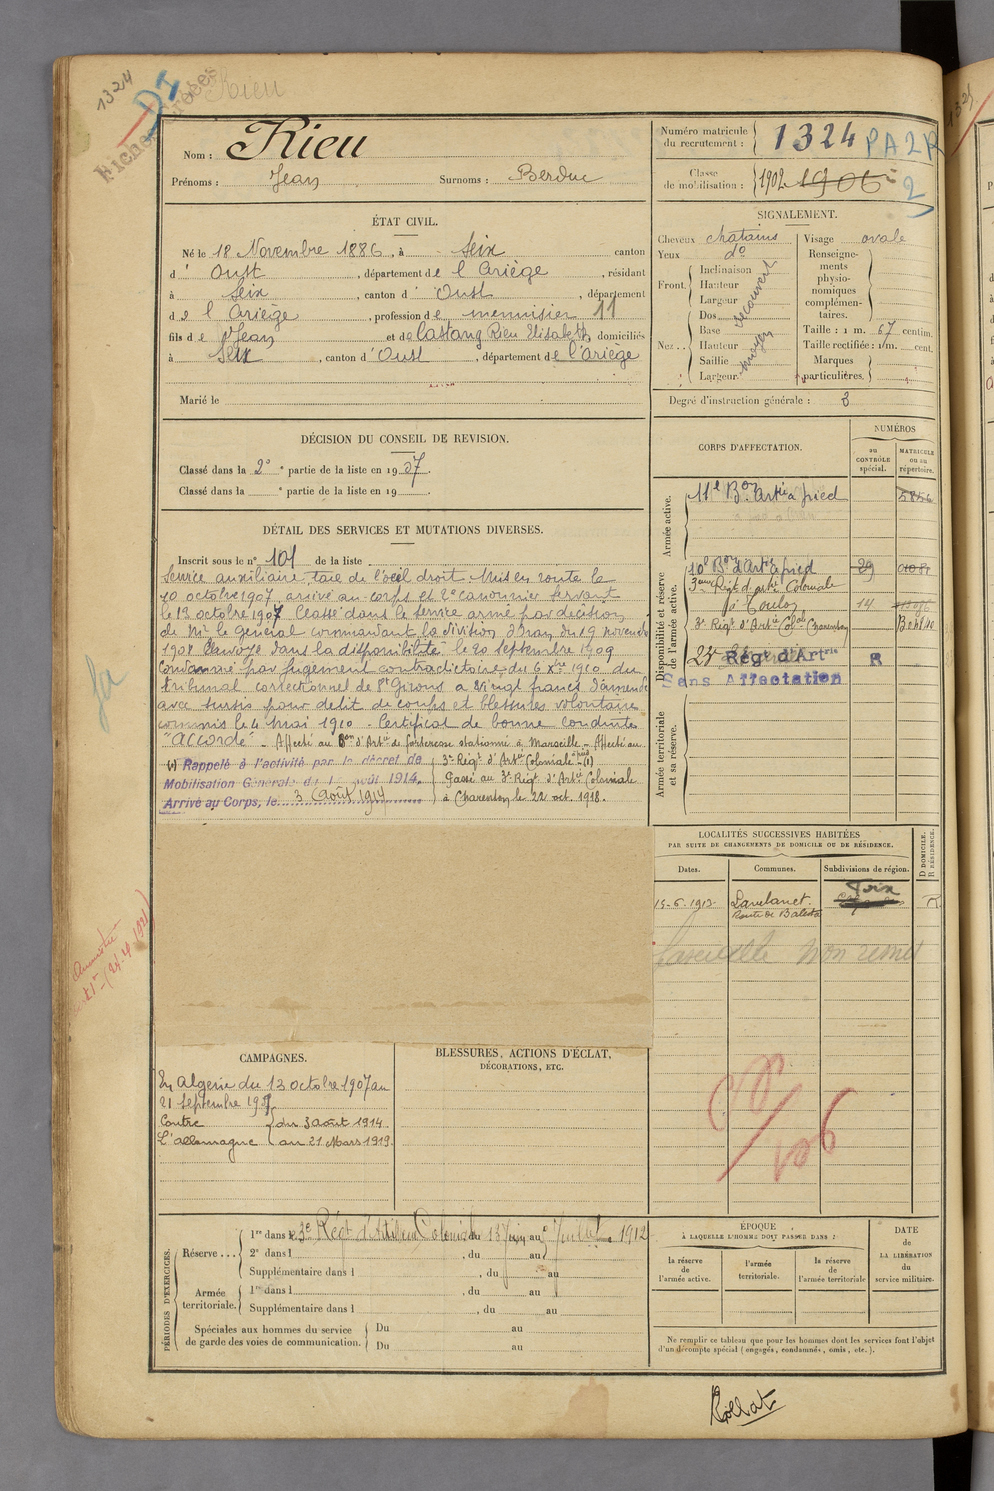 1324
DI
Rieu
Fiche
Nom : Rieu
Prénoms : Jean Surnoms : Berduc
Numéro matricule du recrutement : 1324 PA2R
Classe de mobilisation : 1902 1906 2
ÉTAT CIVIL.
Né le 18 Novembre 1886, à Seix canton
d' Oust, département de l'Ariège, résidant
à Seix, canton d' Oust, département
de l'Ariège, profession de menuisier 11
fils de Jean et de Castang Rieu Elisabeth, domiciliés
à Seix, canton d' Oust, département de l'ariège
Marié le
SIGNALEMENT.
Cheveux chatains
Yeux do
Front. Inclinaison
Hauteur
Largeur
découvert
Nez .. Dos
Base
Hauteur
Saillie
Largeur
moyen
Visage ovale
Renseignements physionomiques complémentaires.
Taille : 1 m. 67 centim.
Taille rectifiée : 1 m. cent.
Marques particulières.
Degré d'instruction générale : 3
DÉCISION DU CONSEIL DE REVISION.
Classé dans la 2e partie de la liste en 1907.
Classé dans la partie de la liste en 19
DÉTAIL DES SERVICES ET MUTATIONS DIVERSES.
Inscrit sous le n° 101 de la liste
Service auxiliaire, taie de l'oeil droit. Mis en route le
10 octobre 1907, arrivé au corps et 2e canonnier servant
le 13 octobre 1907 Classé dans le service armé par décision
de Mr. le Général commandant la division d'Oran du 19 novembre
1908 Envoyé dans la disponibilité le 20 septembre 1909
Condamné par jugement contradictoire du 6 Xbre 1910 du
tribunal correctionnel de St Girons a vingt francs d'amende
avec sursis pour délit de coups et blessures volontaire
commis le 4 mai 1910 - Certificat de bonne conduite
"accordé" - Affecté au Bon d'Artie de forteresse stationné à Marseille - Affecté au
(1) Rappelé à l'activité par le décret de
Mobilisation Générale du 1 août 1914.
Arrivé au Corps, le 3 Août 1914
3e Régt d'Artie Coloniale (1)
Passé au 3e Régt d'Artie Coloniale
à Charenton le 22 oct. 1918.
CORPS D'AFFECTATION.
NUMÉROS
au CONTRÔLE spécial.
MATRICULE ou au répertoire.
Armée active.
11e Bon Artie à pied
Disponibilité et réserve de l'armée active.
10e Bon d'Artie à pied 29
3ème Régt d'artie Coloniale
à Toulon 14
3e Régt d'Artie Colale Charenton
Régt d'Artrie R
Sans Affectation
Armée territoriale et sa réserve.
LOCALITÉS SUCCESSIVES HABITÉES
PAR SUITE DE CHANGEMENTS DE DOMICILE OU DE RÉSIDENCE.
Dates. Communes. Subdivisions de région. D DOMICILE. R RÉSIDENCE.
15-6-1913 Lavelanet. Foix R
Route de Bélesta
non remis
CAMPAGNES.
En Algérie du 13 octobre 1907 au
21 Septembre 1909
Contre du 3 août 1914.
L'allemagne au 21 Mars 1919.
BLESSURES, ACTIONS D'ÉCLAT, DÉCORATIONS, ETC.
106
PÉRIODES D'EXERCICES.
Réserve ... 1re dans le 3e Régt d'Artillerie Coloniale du 13 juin au juillet 1912
2e dans l , du au
Supplémentaire dans l , du au
Armée territoriale. 1re dans l , du au
Supplémentaire dans l , du au
Spéciales aux hommes du service de garde des voies de communication. Du au
Du au
ÉPOQUE
À LAQUELLE L'HOMME DOIT PASSER DANS :
la réserve de l'armée active.
l'armée territoriale.
la réserve de l'armée territoriale
DATE de LA LIBÉRATION du service militaire.
Ne remplir ce tableau que pour les hommes dont les services font l'objet
d'un décompte spécial (engagés, condamnés, omis, etc.).